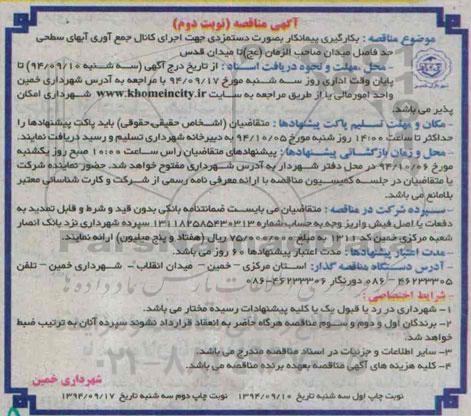 آگهی مناقصه (نوبت دوم)
موضوع مناقصه : بکارگیری پیمانکار بصورت دستمزدی جهت اجرای کانال جمع آوری آبهای سطحی
حد فاصل میدان صاحب الزمان (عج) تا میدان قدس
محل ،مهلت و نحوه دریافت اسناد : از تاریخ درج آگهی (سه شنبه ۹۴/۰۹/۱۰) تا
پایان وقت اداری روز سه شنبه مورخ ۹۴/۰۹/۱۷ با مراجعه به آدرس شهرداری خمین
واحد امورمالی یا از طریق مراجعه به سایت www.khomeincity.ir شهرداری امکان
پذیر می باشد.
مکان و مهلت تسلیم پاکت پیشنهادها : متقاضیان (اشخاص حقیقی،حقوقی) باید پاکت پیشنهادها را
حداکثر تا ساعت ۱۴:۰۰ روز شنبه مورخ ۹۴/۱۰/۰۵ به دبیرخانه شهرداری تسلیم و رسید دریافت نمایند.
محل و زمان بازگشائی پیشنهادها : پیشنهادهای متقاضیان راس ساعت ۱۰:۰۰ صبح روز یکشنبه
مورخ ۹۴/۱۰/۰۶ در محل دفتر شهردار به آدرس شهرداری مفتوح خواهد شد. حضور نماینده شرکت
یا متقاضیان در جلسه کمیسیون مناقصه با ارائه معرفی نامه رسمی از شرکت و کارت شناسائی معتبر
بلامانع می باشد.
سپرده شرکت در مناقصه : متقاضیان می بایست ضمانتنامه بانکی بدون قید و شرط و قابل تمدید به
دفعات یا اصل فیش واریز وجه به حساب شماره ۱۳۱۱۸۲۵۸۵۴۳۰۳۱۳ سپرده شهرداری نزد بانک انصار
شعبه مرکزی خمین کد ۱۳۱۱ به مبلغ ۷۵/۰۰۰/۰۰۰ ریال (هفتاد و پنج میلیون) ارائه نمایند.
مدت اعتبار پیشنهادها : مدت اعتبار پیشنهادها ۶۰ روز می باشد.
آدرس دستگاه مناقصه گذار: استان مرکزی – خمین – میدان انقلاب – شهرداری خمین – تلفن
۰۸۶-۴۶۲۳۳۳۰۵ دورنگار ۰۸۶-۴۶۲۳۳۳۰۶
شرایط اختصاصی :
۱- شهرداری در رد یا قبول یک یا کلیه پیشنهادات رسیده مختار می باشد.
۲- برندگان اول و دوم و سوم مناقصه هرگاه حاضر به انعقاد قرارداد نشوند سپرده آنان به ترتیب ضبط
خواهد شد.
۳- سایر اطلاعات و جزئیات در اسناد مناقصه مندرج می باشد.
۴- کلیه هزینه های آگهی مناقصه بعهده برنده مناقصه می باشد.
شهرداری خمین
نوبت چاپ اول سه شنبه تاریخ ۱۳۹۴/۰۹/۱۰ نوبت چاپ دوم سه شنبه تاریخ ۱۳۹۴/۰۹/۱۷